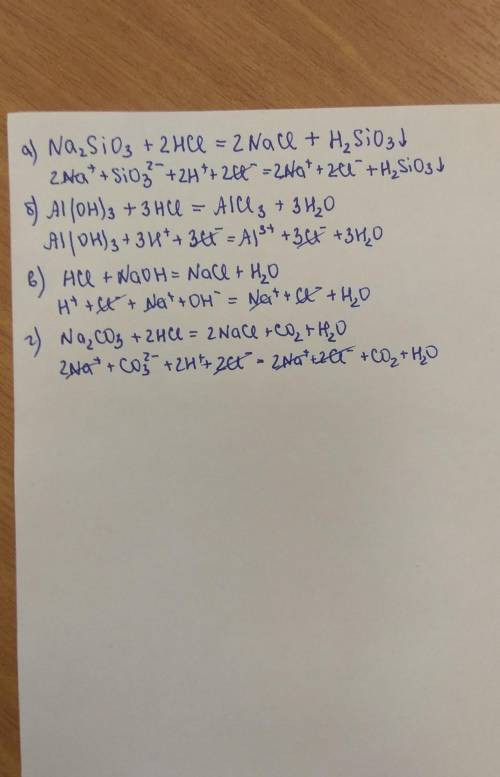 а) Na₂SiO₃ + 2HCl = 2NaCl + H₂SiO₃↓
2Na⁺ + SiO₃²⁻ + 2H⁺ + 2Cl⁻ = 2Na⁺ + 2Cl⁻ + H₂SiO₃↓
б) Al(OH)₃ + 3HCl = AlCl₃ + 3H₂O
Al(OH)₃ + 3H⁺ + 3Cl⁻ = Al³⁺ + 3Cl⁻ + 3H₂O
в) HCl + NaOH = NaCl + H₂O
H⁺ + Cl⁻ + Na⁺ + OH⁻ = Na⁺ + Cl⁻ + H₂O
г) Na₂CO₃ + 2HCl = 2NaCl + CO₂ + H₂O
2Na⁺ + CO₃²⁻ + 2H⁺ + 2Cl⁻ = 2Na⁺ + 2Cl⁻ + CO₂ + H₂O